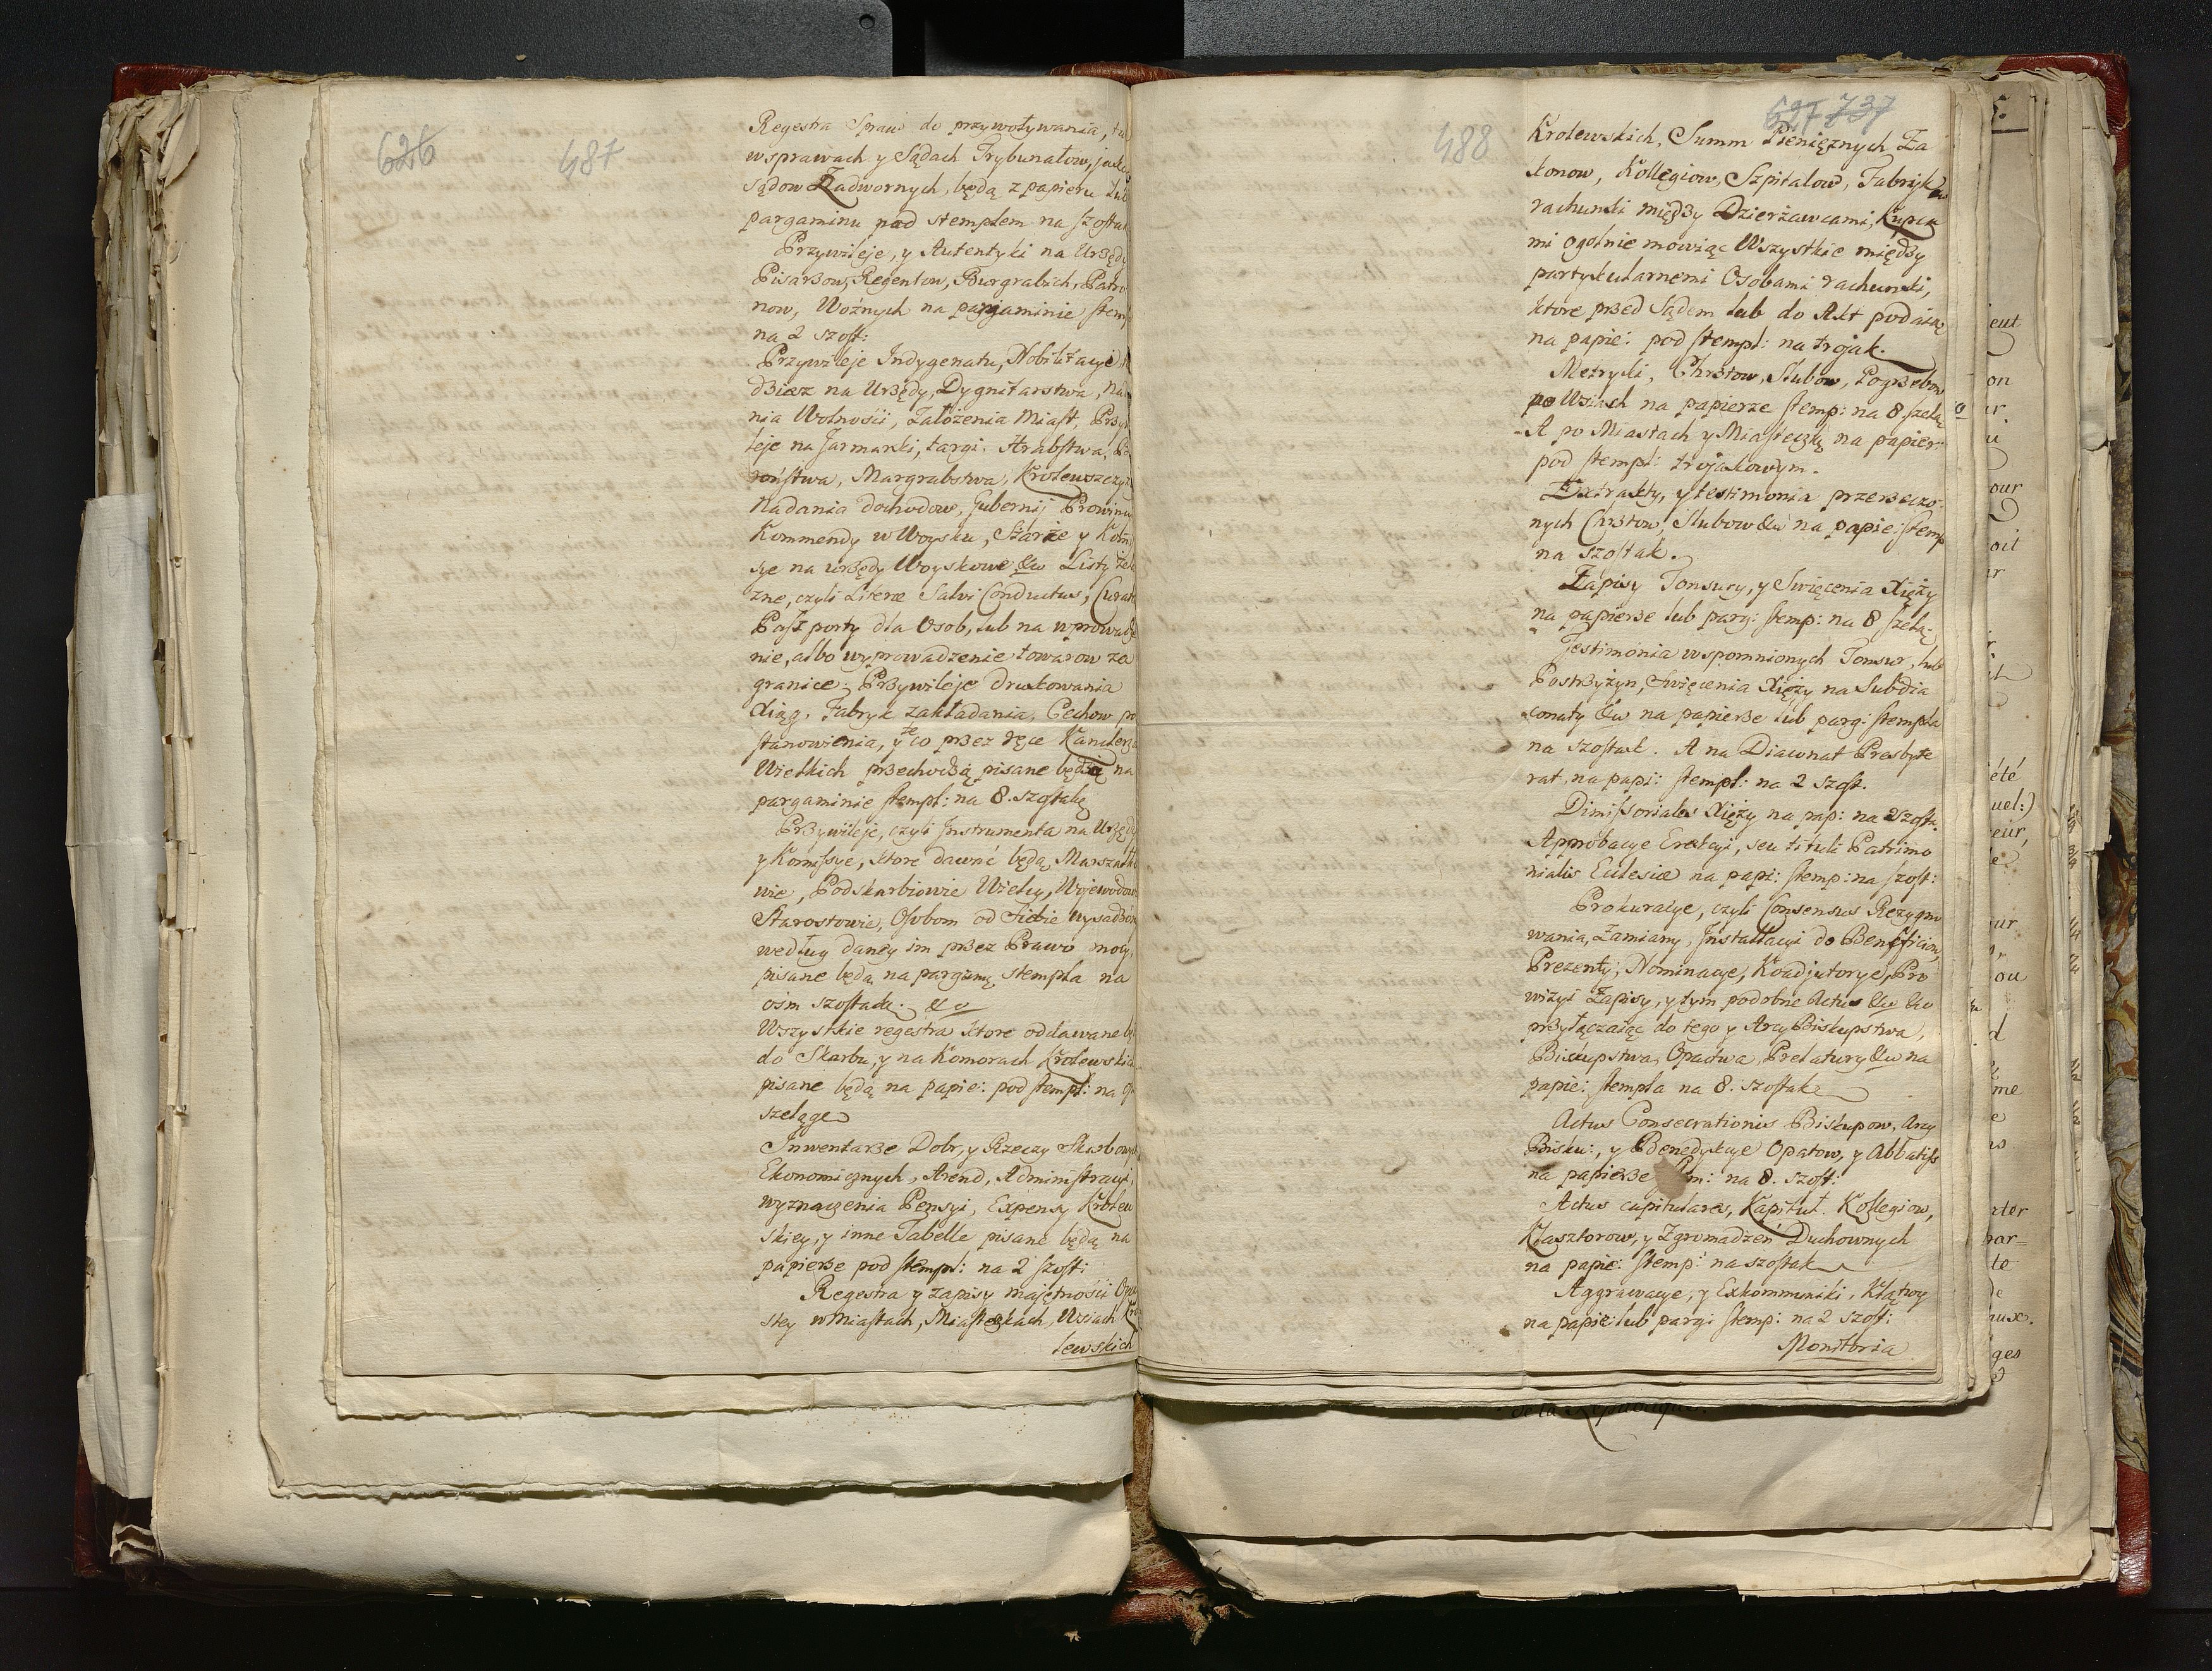 626
487
Regestra Spraw do przywoływania, tu
w sprawach y Sądach Trybunałow, jako
sądow Zadwornych, będą z papieru lub
pargaminu pod stemplem na szostak
Przywileje, y Autentyki na Urzędy
Pisarzow, Regentow, Burgrabich, Patro
now, Woźnych na pargaminie stemp
na 2 szost:
Przywileje Indygenatu, Nobilitacye,
dziesz na Urzędy, Dygnitarstwa, Nada
nia Wolnosci, Założenia Miast, Przywi
leje na Jarmarki, targi. Hrabstwa, Ba
ronstwa, Margrabstwa, Krolewszczyzn
Nadania dochodow, Gubernij Prowincy
Kommendy w Woysku, Szarże y Kom
sye na urzędy Woyskowe &c Listy żela
zne, czyli Literæ Salvi Conductus, Curat
Paszporty dla Osob, lub na wprowadze
nie, albo wyprowadzenie towarow za
granice; Przywileje drukowania
Xiąg. Fabryk zakładania, Cechow po
stanowienia, y te co przez ręce Kanclerzy
Wielkich przechodzą pisane będą na
pargaminie stempl: na 8. szostakę
Przywileje, czyli Instrumenta na Urzędy
y Komissye, ktore dawać będą Marszałko
wie, Podskarbiowie Wielcy, Wojewodow
Starostowie, Osobom od siebie wysadzon
według daney im przez Prawo mocy,
pisane będą na pargamę stempla na
ośm szostakę. &c
Wszystkie regestra ktore oddawane bę
do Skarbu, y na Komorach Krolewskich
pisane będą na papie: pod stempl: na 
szelągę
Inwentarze Dobr, y Rzeczy Skarbowych
Ekonomicznych, Arend, Administracyi,
wyznaczenia Pensyi, Expensy Krolew
skiey, y inne Tabelle pisane będą na
papierze pod stempl: na 2 szost:
Regestra y zapisy majętności Oyczy
stey w Miastach, Miasteczkach, Wsiach Kro
lewskich
627 737
488
Krolewskich, Summ Pieniężnych Za
konow, Kollegiow, Szpitalow, Fabryk
rachunki między Dzierżawcami, Kupca
mi ogolnie mowiąc Wszystkie między
partykularnemi Osobami rachunki,
ktore przed Sądem lub do Akt podaią
na papie: pod stempl: na trojak.
Metryki, Chrztow, Slubow, Pogrzebow
po Wsiach na papierze stemp: na 8. szela
A po Miastach y Miasteczkę na papier:
pod stempl: trojakowym.
Extrakty, y testimonia przerzeczo
nych Chrztow, Slubow &c na papie: stemp
na szostak.
Zapisy Tonsury, y Swięcenia Xięży
na papierze lub parg: stemp: na 8 szelą
Testimonia wspomnionych Tonsur, lub
Postrzyżyn, Swięcenia Xięży na Subdia
conaty &c na papierze lub parg: stempla
na szostak. A na Diaconat Presbyte
rat, na papi: stempl: na 2 szost.
Dimissoriales Xięży na pap: na 2 szosta.
Approbacye Erekcyi, seu tituli Patrimo
nialis Eclesiæ na papi: stemp: na szost:
Prokuracye, czyli Consensus Rezygno
wania, Zamiany, Installacyi do Beneficiow,
Prezenty, Nominacye, Koadjutorye, Pro
wizyi Zapisy, y tym podobne Actus &c &c
przyłączaiąc do tego y Arzy Biskupstwa,
Biskupstwa, Opactwa, Prelatury &c na
papie: stempla na 8. szostakę
Actus Consecrationis Biskupow, Arzy
Bisku:, y Benedykcye Opatow, y Abbatiss
na papierze na 8. szost:
Actus capitulares, Kapituł. Kollegiow,
Klasztorow, y Zgromadzeń Duchownych
na papie: stemp: na szostak
Aggrawacye, y Exkommuniki, Klątwy
na papie: lub parg: stemp: na 2 szost:
Monitoria